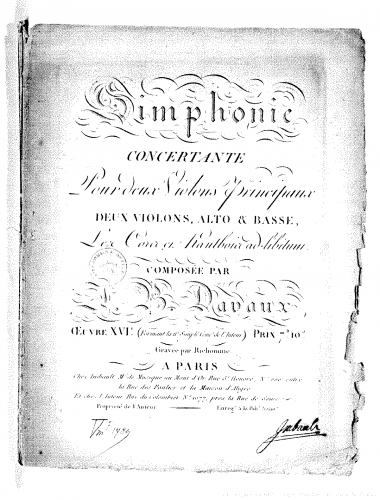 Simphonie
CONCERTANTE
Pour deux Violons Principaux
DEUX VIOLONS, ALTO & BASSE,
Les Cors et Hautbois ad-libitum
COMPOSÉE PAR
J. B. Davaux
ŒUVRE XVI. PRIX 7tt 10s
Gravée par Richomme
A PARIS
Chez Imbault Md. de Musique au Mont d'Or Rue St. Honoré, No. entre
la Rue des Poulies et la Maison d'Aligre
Et chez l'Auteur Rue du Colombier No. 1077, près la Rue de Seine
Propriété de l'Auteur Enreg.
Imbault